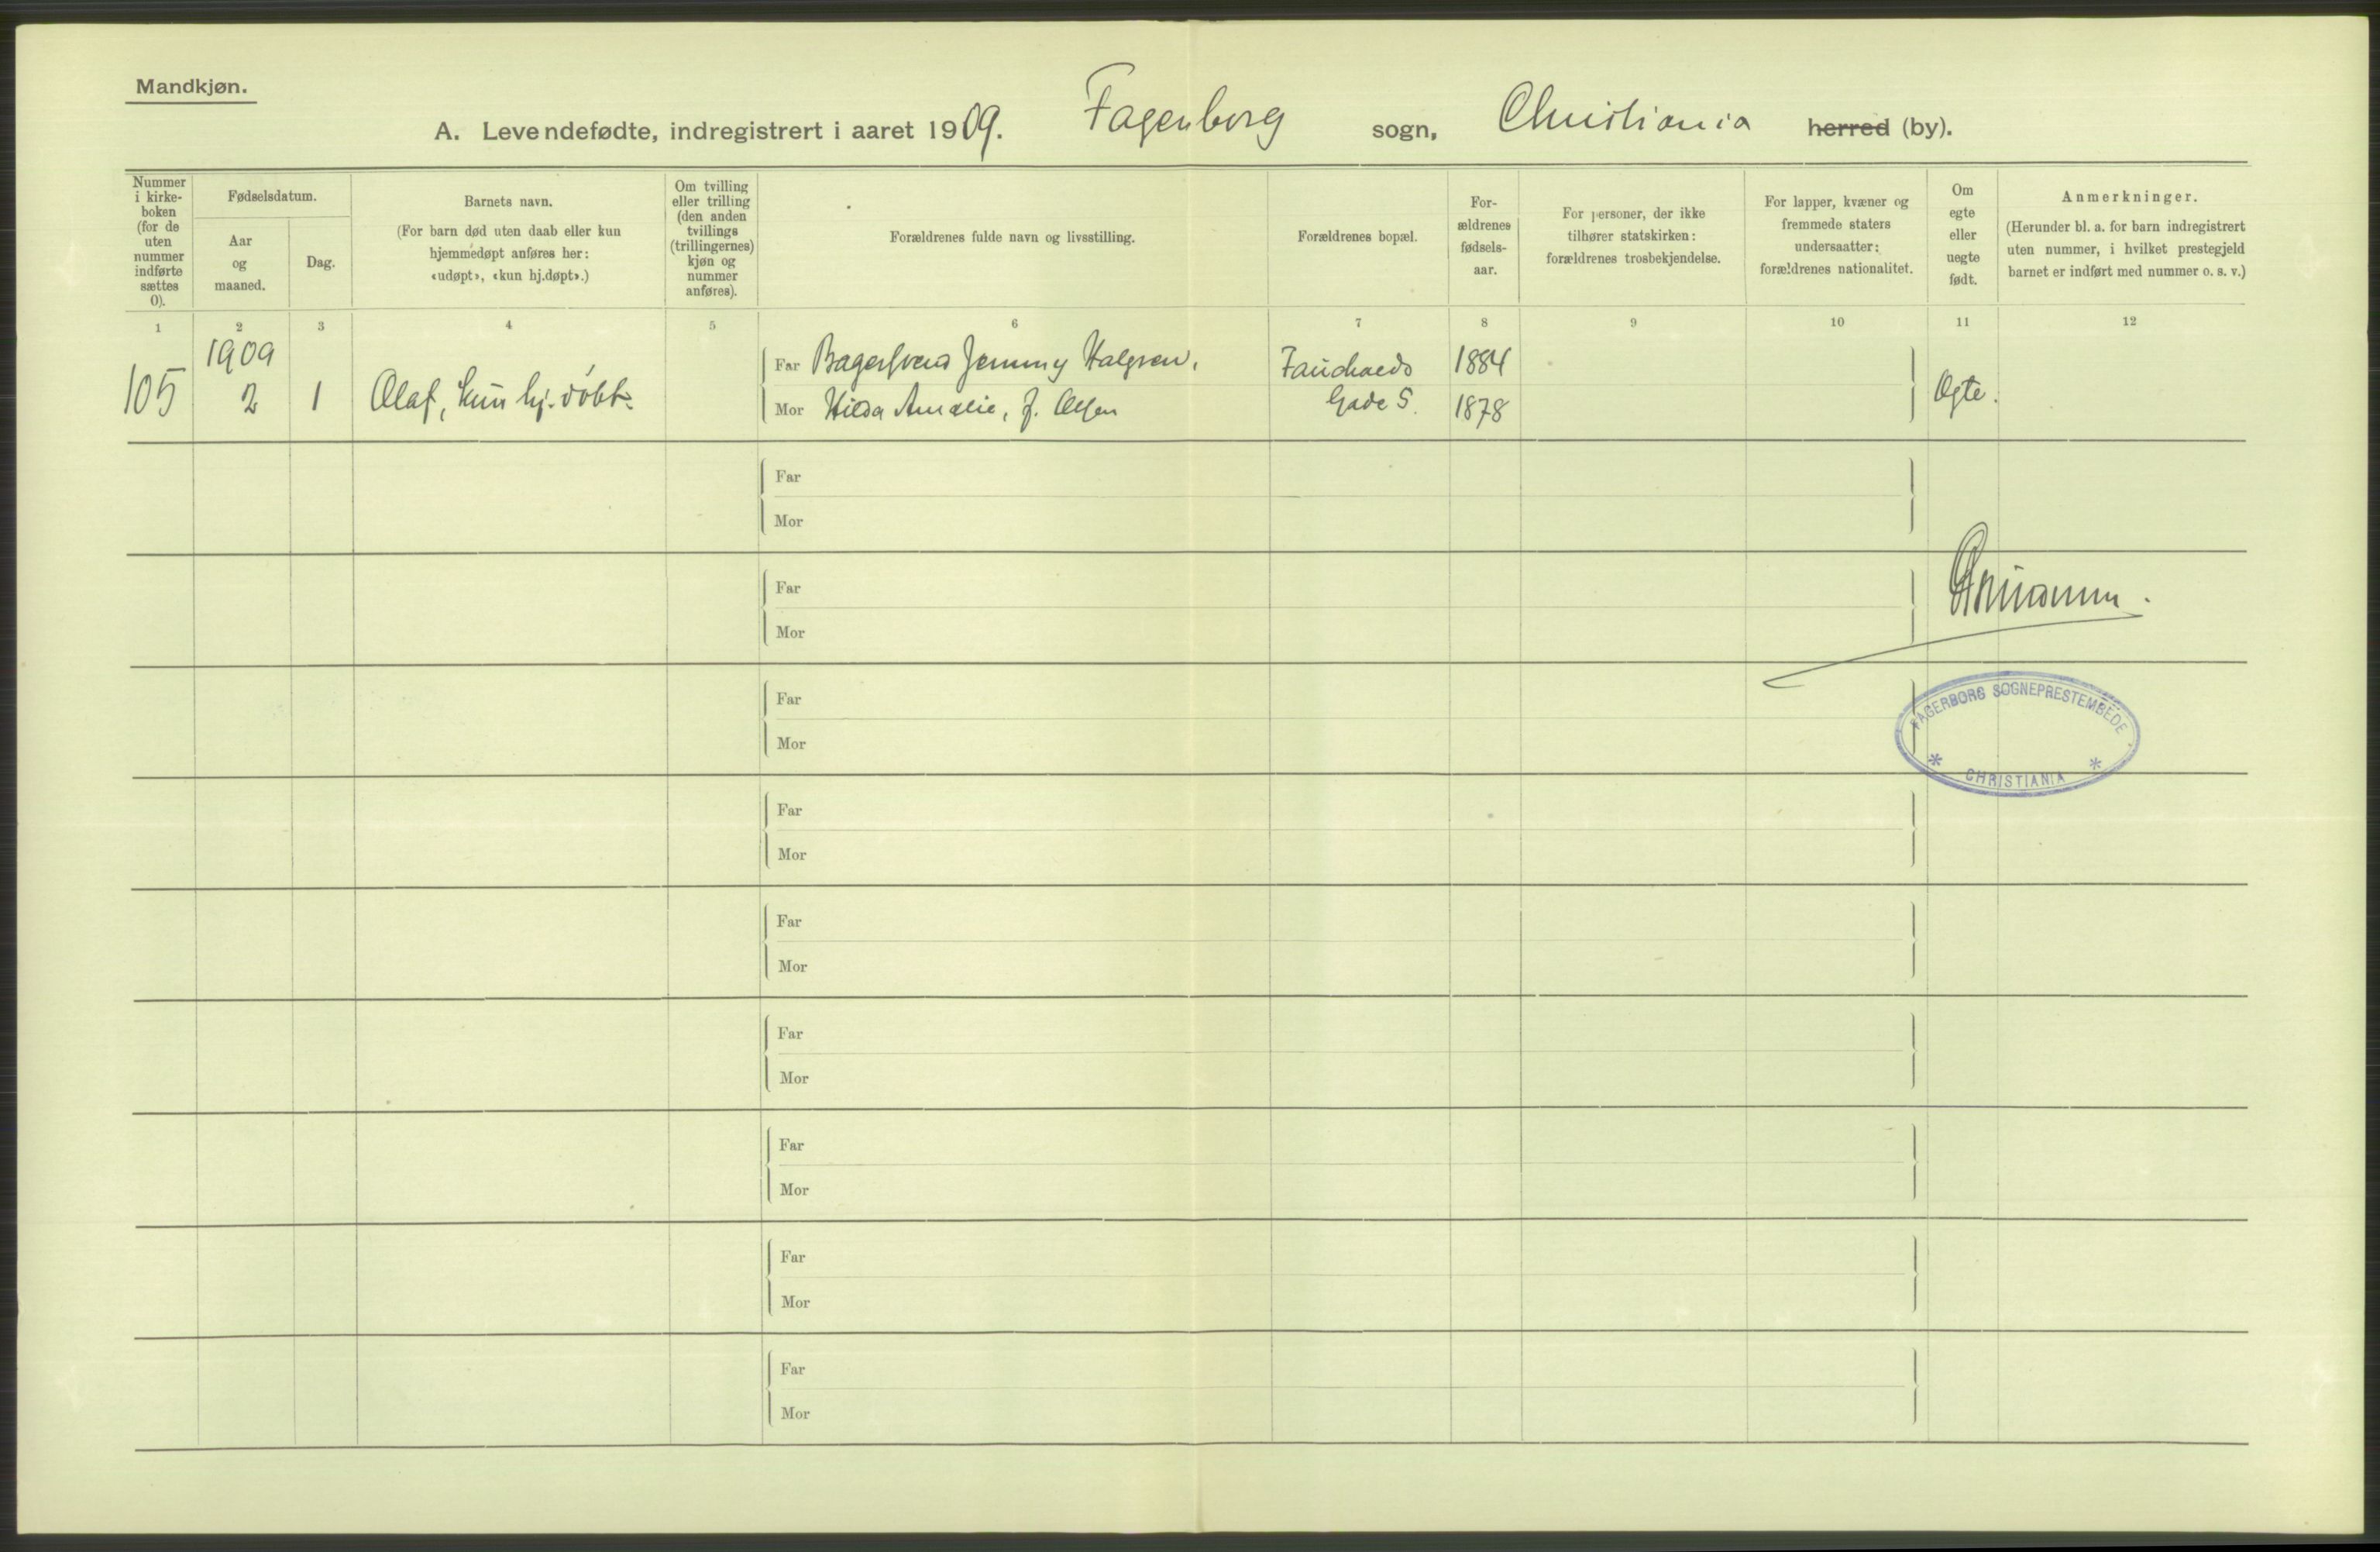 Mandkjøn.
A. Levendefødte, indregistrert i aaret 1909. Fagerborg sogn, Christiania herred (by).
Nummer i kirke-boken (for de uten nummer indførte sættes 0).
Fødselsdatum.
Aar og maaned.
Dag.
Barnets navn.
(For barn død uten daab eller kun
hjemmedøpt anføres her:
«udøpt», «kun hj.døpt».)
Om tvilling
eller trilling
(den anden
tvillings
(trillingernes)
kjøn og
nummer
anføres).
Forældrenes fulde navn og livsstilling.
Forældrenes bopæl.
For-
ældrenes
fødsels-
aar.
For personer, der ikke
tilhører statskirken:
forældrenes trosbekjendelse.
For lapper, kvæner og
fremmede staters
undersaatter:
forældrenes nationalitet.
Om
egte
eller
uegte
født.
Anmerkninger.
(Herunder bl. a. for barn indregistrert
uten nummer, i hvilket prestegjeld
barnet er indført med nummer o. s. v.)
1 2 3 4 5 6 7 8 9 10 11 12
1909
105 2 1 Olaf, kun hj. døbt.
Far Bagersvend Jemmy Halgren. 1884
Mor Hilda Amalie, f. Olsen Gade 5. 1878
Egte.
Far
Mor
Far
Mor
Far
Mor
FAGERBORG SOGNEPRESTEMBEDE
* CHRISTIANIA *
Far
Mor
Far
Mor
Far
Mor
Far
Mor
Far
Mor
Far
Mor